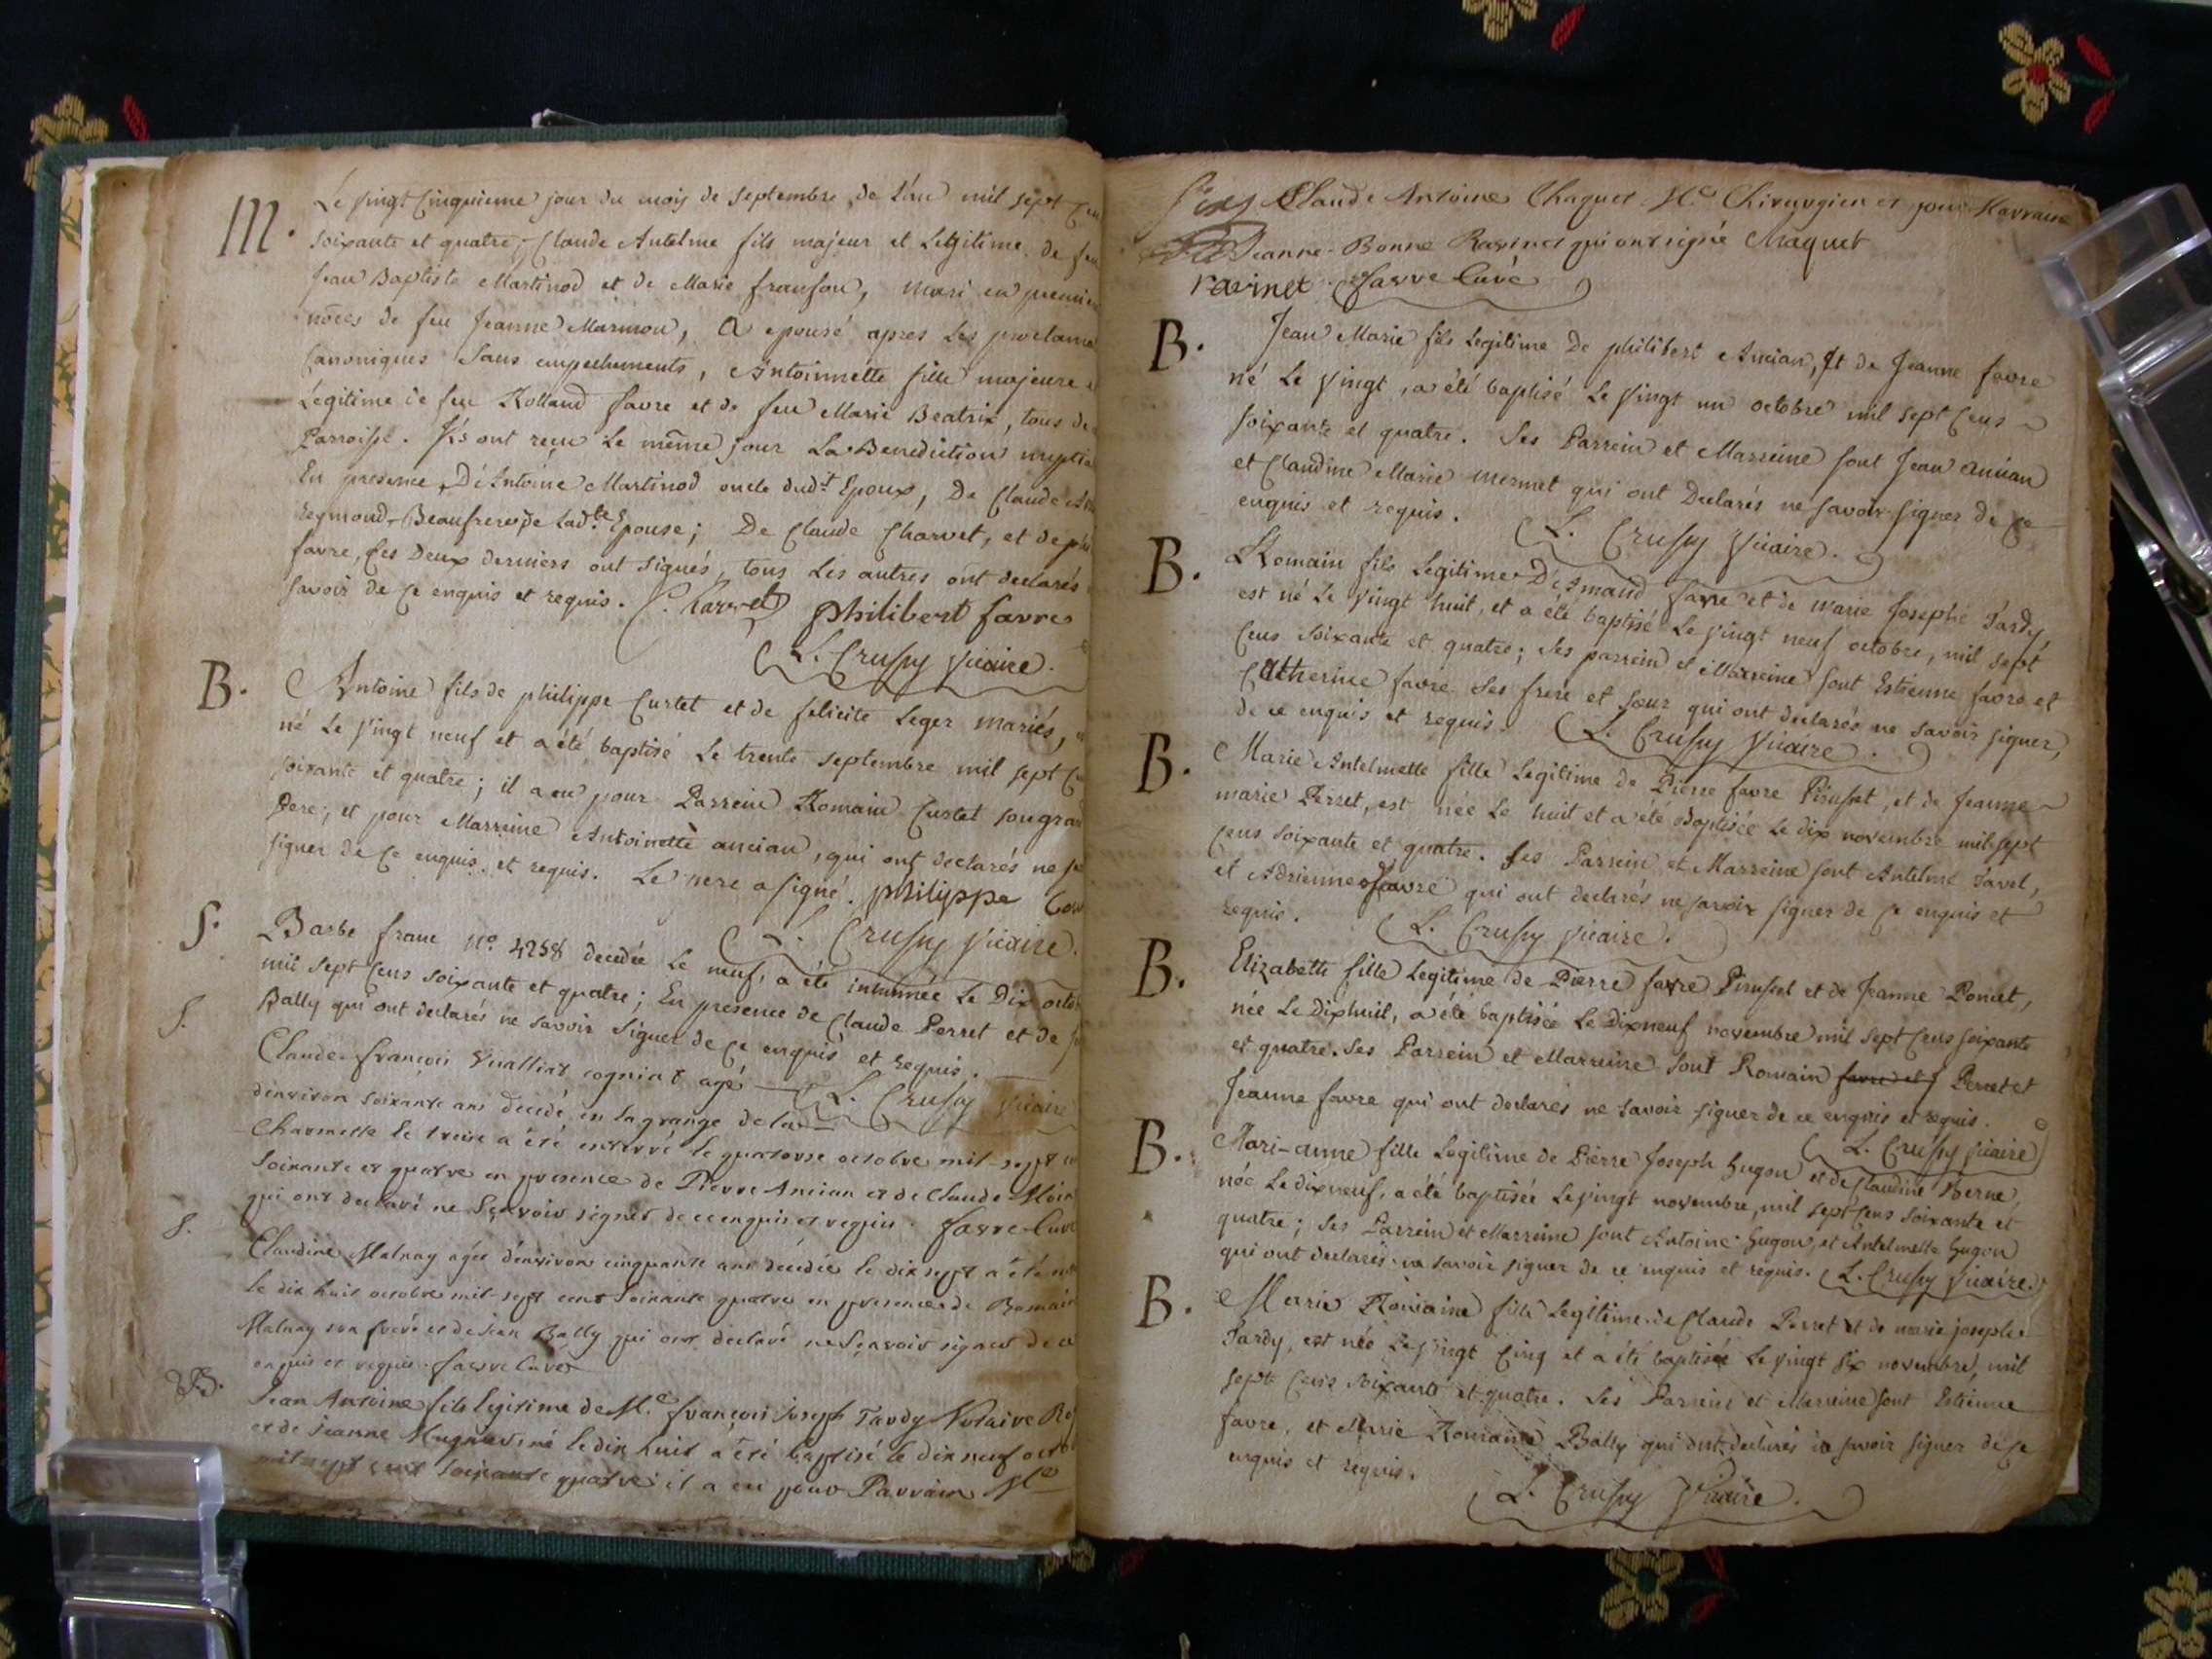 M.
Le vingt cinquieme jour du mois de septembre de l'an mil sept cen
soixante et quatre, Claude Antelme fils majeur et Legitime de feu
Jean Baptiste Martinod et de Marie franson, mari en premier
nôces de feu Jeanne Marmou, a epousé apres les proclama
Canoniques sans empechements, Antoinnette fille majeure et
Légitime de feu Rolland favre et de feu Marie Beatrix, tous de
Parroisse. Ils ont reçu le même jour La Benediction nuptia
En presence D'Antoine Martinod oncle dud.t Epoux, De Claude
Reymond Beaufrere de Lad.te Epouse; De Claude Charvet, et de phi
favre, ses Deux derniers ont signés, tous les autres ont declarés
savoir de ce enquis et requis. C. Charvet philibert favre
L. Crussy vicaire.
B.
Antoine fils de philippe Curtet et de felicite Leger mariés,
né le vingt neuf et a été baptisé le trente septembre mil sept ce
soixante et quatre; il a eu pour Parrein Romain Curtet son grand
Pere; et pour Marreine Antoinette ancian, qui ont declarés ne s
signer de ce enquis et requis. Le pere a signé. philippe Cur
L. Crussy vicaire.
S.
Barbe franc No. 4258 decedée le neuf, a été inhumée le Dix octo
mil sept cens soixante et quatre; En presence de Claude Perret et de J
Bally qui ont declarés ne savoir signer de ce enquis et requis.
L. Crussy vicaire
S.
Claude françois Vualliat cogniat agé
denviron soixante ans decedé en la grange de la
Charmette le treise a été enterré le quatorse octobre mil sept ce
soixante et quatre en presence de Pierre Ancian et de Claude
qui ont declaré ne sçavoir signer de ce enquis et requis. favre Curé
S.
Claudine Malnay agée denviron cinquante ans decedée le dix sept a été
le dix huit octobre mil sept cent soixante quatre en presence de Romain
Malnay son frere et de Jean Bally qui ont declaré ne sçavoir signer de ce
enquis et requis. favre Curé
B.
Jean Antoine fils legitime de M.e françois Joseph Tardy Notaire Ro
et de Jeanne Mugnier né le dix huit a été baptisé le dix neuf octo
mil sept cent soixante quatre il a eu pour Parrain M.e
Claude Antoine Chaquet M.e Chirurgien et pour Marraine
Jeanne Bonne Ravinet qui ont signé Chaquet
ravinet favre Curé
B.
Jean Marie fils legitime De philibert Ancian, Et de Jeanne favre
né le vingt, a été baptisé le vingt un octobre mil sept cens
soixante et quatre. Ses Parrein et Marreine sont Jean ancian
et Claudine Marie mermet qui ont Declarés ne savoir signer de ce
enquis et requis. L. Crussy vicaire.
B.
Romain fils Legitime D'Amand favre et de marie Josephe Tardy,
est né le vingt huit, et a été baptisé le vingt neuf octobre, mil sept
cens soixante et quatre; Ses parrein et Marreine sont Estienne favre et
Catherine favre ses frere et soeur qui ont declarés ne savoir signer,
de ce enquis et requis. L. Crussy vicaire.
B.
Marie Antelmette fille Legitime de Pierre favre Pirussel, et de Jeanne
marie Perret, est née le huit et a été Baptisée le dix novembre mil sept
cens soixante et quatre. Ses Parrein et Marreine sont Antelme Favet,
et Adrienne favre qui ont declarés ne savoir signer de ce enquis et
requis. L. Crussy vicaire.
B.
Elizabette fille Legitime de Pierre favre Pirussel et de Jeanne Poncet,
née le dixhuit, a été baptisée le dixneuf novembre mil sept cens soixante
et quatre. Ses Parrein et Marreine sont Romain favre et Perret et
Jeanne favre qui ont declarés ne savoir signer de ce enquis et requis.
L. Crussy vicaire
B.
Mari-anne fille Legitime de Pierre Joseph hugon et de Claudine Berne,
née le dixneuf, a été baptisée le vingt novembre, mil sept cens soixante et
quatre; Ses Parrein et Marreine sont Antoine hugon, et Antelmette hugon
qui ont declarés ne savoir signer de ce enquis et requis. L. Crussy vicaire.
B.
Marie Romaine fille Legitime de Claude Perret et de marie josephe
Tardy, est née le vingt cinq et a été baptisée le vingt six novembre, mil
sept cens soixante et quatre. Ses Parrein et Marreine sont Estienne
favre, et Marie Romaine Bally qui ont declarés ne savoir signer de ce
enquis et requis.
L. Crussy vicaire.